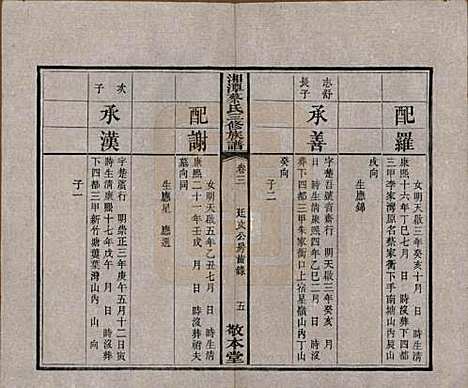 配羅
女明天啟三年癸亥十月 日 時生清
康熙十六年丁巳七月 日 時沒葬下四都
三甲李家灣原名蔡家衝下手南塘山內辰山
戌向
生應錦
志舒
長子
承善
字楚吾號音齋行 明天啟三年癸亥 月
日 時生清康熙四年乙巳二月 日 時
沒葬下四都三甲朱家衝口上宿星嶺山內丁山
癸向
子二
湘潭蔡氏三修族譜
卷三
廷 公房齒錄
五
敬本堂
配謝
女明天啟五年乙丑七月 日 時生清
康熙二十一年壬戌 月 日 時沒葬祔夫
墓向同
生應星 應選
次
子
承漢
字楚賓行 明崇正三年庚午五月十二日寅
時生清康熙十七年戊午 月 日 時沒葬
下四都三甲新竹塘蕉葉灣山內 山 向
子一